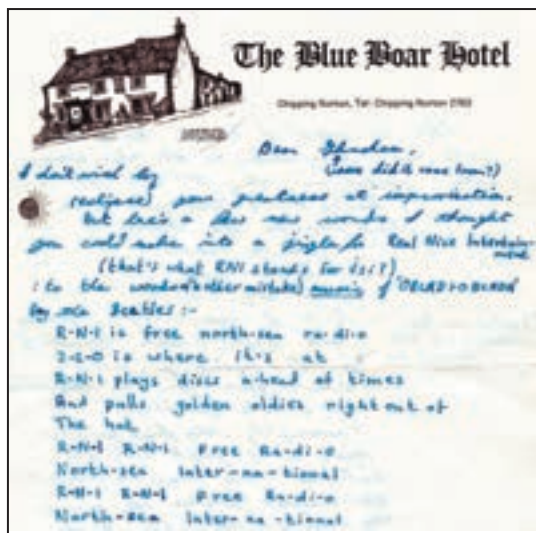 The Blue Boar Hotel
Chipping Norton, Tel: Chipping Norton
Dear
I don't wish by
(eclipse) your greatness at improvisation.
but here's a few new words I thought
you could make into a jingle for Real Nice Intertain-
ment
(that's what RNI stands for isit?)
: to the (another mistake) music of 'OBLADIOBLADA'
by the Beatles :-
R-N-I is free north-sea ra-di-o
2-2-0 is where it's at
R-N-I plays discs a-head of times
And pulls golden oldies right out of
The hat
R-N-I R-N-I Free Ra-di-o
North-sea Inter-na-tional
R-N-I R-N-I Free Ra-di-o
North-sea Inter-na-tional